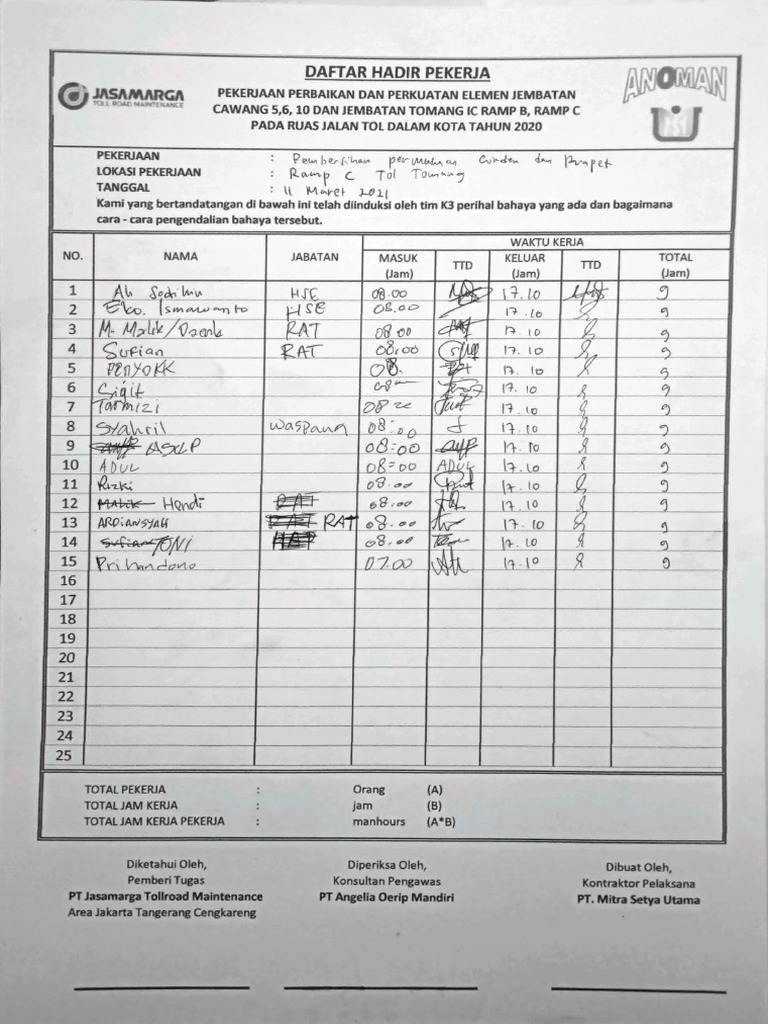 DAFTAR HADIR PEKERJA
JASAMARGA
TOLL ROAD MAINTENANCE
ANOMAN
PEKERJAAN PERBAIKAN DAN PERKUATAN ELEMEN JEMBATAN
CAWANG 5,6, 10 DAN JEMBATAN TOMANG IC RAMP B, RAMP C
PADA RUAS JALAN TOL DALAM KOTA TAHUN 2020
PEKERJAAN : Pembersihan permukaan Girder dan Prapet
LOKASI PEKERJAAN : Ramp C Tol Tomang
TANGGAL : 11 Maret 2021
Kami yang bertandatangan di bawah ini telah diinduksi oleh tim K3 perihal bahaya yang ada dan bagaimana
cara - cara pengendalian bahaya tersebut.
WAKTU KERJA
NO. NAMA JABATAN MASUK (Jam) TTD KELUAR (Jam) TTD TOTAL (Jam)
1 Ali HSE 08.00 17.10 9
2 Eko. Ismawanto HSE 08.00 17.10 9
3 M. Malik/ RAT 08.00 17.10 9
4 Sufian RAT 08.00 17.10 9
5 PENYOKK 08. 17.10 9
6 Sigit 08 17.10 9
7 Tarmizi 08 17.10 9
8 Syahril Waspang 08:00 17.10 9
9 ASEP 08:00 17.10 9
10 ADUL 08=00 ADUL 17.10 9
11 Rizki 08.00 17.10 9
12 Malik Hendi RAT 08.00 17.10 9
13 ARDIANSYAH RAT RAT 08.00 17.10 9
14 Sufian TONI RAT 08.00 17.10 9
15 Prihandono 07.00 17.10 9
16
17
18
19
20
21
22
23
24
25
TOTAL PEKERJA : Orang (A)
TOTAL JAM KERJA : jam (B)
TOTAL JAM KERJA PEKERJA : manhours (A*B)
Diketahui Oleh, Diperiksa Oleh, Dibuat Oleh,
Pemberi Tugas Konsultan Pengawas Kontraktor Pelaksana
PT Jasamarga Tollroad Maintenance PT Angelia Oerip Mandiri PT. Mitra Setya Utama
Area Jakarta Tangerang Cengkareng